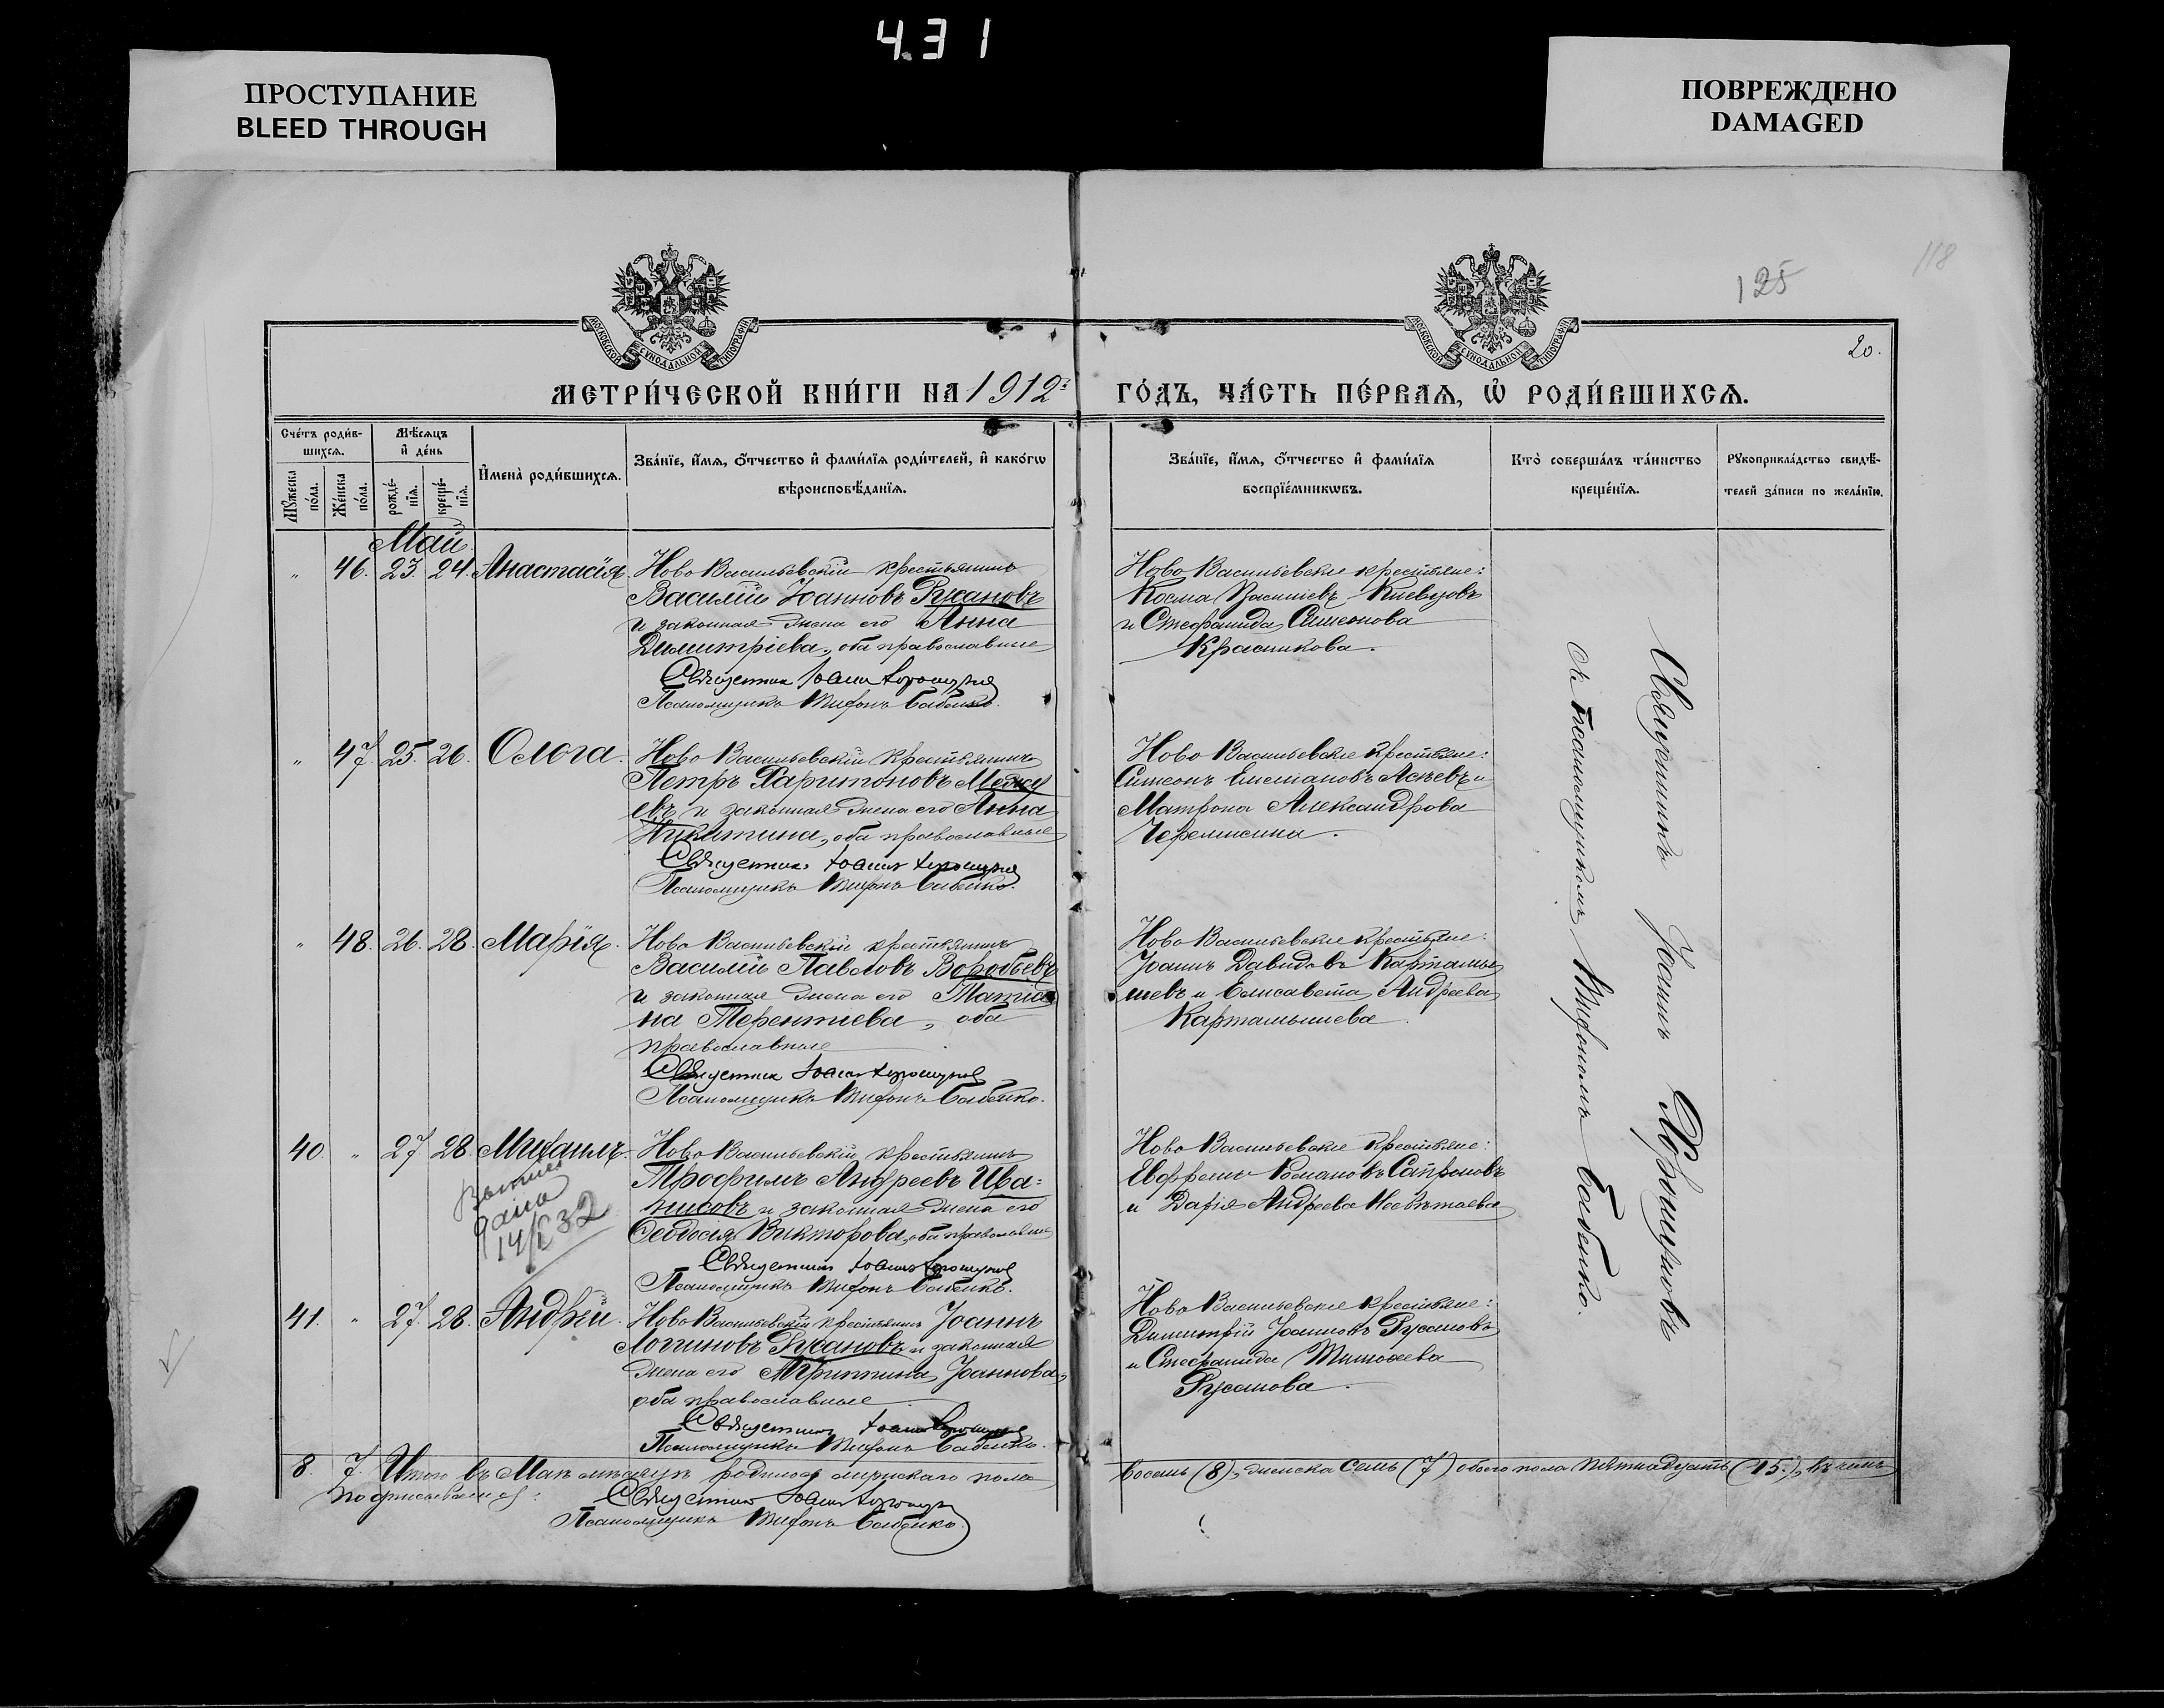 4.31
ПРОСТУПАНИЕ
BLEED THROUGH
ПОВРЕЖДЕНО
DAMAGED
118
125
20.
МОСКОВСКОЙ СѴНОДАЛЬНОЙ ТИПОГРАФІИ
МОСКОВСКОЙ СѴНОДАЛЬНОЙ ТИПОГРАФІИ
МЕТРИ́ЧЕСКОЙ КНИ́ГИ НА 1912й
ГО́ДЪ, ЧА́СТЬ ПЕ́РВАѦ, Ѽ РОДИ́ВШИХСѦ.
Сче́тъ роди́в-
шихсѧ.
Мѣ́сѧцъ
и҆ де́нь
Мꙋ́жеска по́ла.
Же́нска по́ла.
рожде́-нїѧ.
креще́-нїѧ.
И҆мена̀ роди́вшихсѧ.
Зва́нїе, и҆́мѧ, ѻ҆́тчество и҆ фами́лїѧ роди́телей, и҆ како́гѡ
вѣроисповѣ́данїѧ.
Зва́нїе, и҆́мѧ, ѻ҆́тчество и҆ фами́лїѧ
воспрїе́мникѡвъ.
Кто̀ соверша́лъ та́инство
креще́нїѧ.
Рꙋкоприкла́дство свидѣ́-
телей за́писи по жела́нїю.
Май
" 46. 23. 24. Анастасія. Ново Васильевскій крестьянинъ
Василій Іоанновъ Русановъ
и законная жена его Анна
Димитріева, оба православные
Священник Іоанн Хорошунов
Псаломщикъ Тифонъ Бабенко.
Ново Васильевские крестьяне:
Косма Васильевъ Киевцовъ
и Стефанида Симеонова
Красникова.
" 47. 25. 26. Ольга. Ново Васильевскій крестьянинъ
Петръ Харитоновъ
евъ и законная жена его Анна
Никитина, оба православные
Священник Іоанн Хорошунов
Псаломщикъ Тифонъ Бабенко.
Ново Васильевские крестьяне:
Симеонъ Емельяновъ Асѣевъ и
Матрона Александрова
Черемисина.
" 48. 26. 28. Марія. Ново Васильевскій крестьянинъ
Василій Павловъ Воробьевъ
и законная жена его Татіа
на Терентиева, оба
православные
Священник Іоанн Хорошунов
Псаломщикъ Тифонъ Бабенко.
Ново Васильевские крестьяне:
Іоаннъ Давидовъ Картамы
шевъ и Елисавета Андреева
Картамышева.
40. " 27. 28. Михаилъ. Ново Васильевскій крестьянинъ
Трофимъ Андреевъ Ива=
нисовъ и законная жена его
Феодосія Викторова, оба православные
Священник Іоанн Хорошунов
Псаломщикъ Тифонъ Бабенко.
дана
14/I 32
Ново Васильевские крестьяне:
Евфремъ Романовъ Сапроновъ
и Дарія Андреева
41. " 27. 28. Андрей. Ново Васильевскій крестьянинъ Іоаннъ
Логгиновъ Русановъ и законная
жена его Агриппина Іоаннова,
оба православные
Священник Іоанн Хорошунов
Псаломщикъ Тифонъ Бабенко.
Ново Васильевские крестьяне:
Димитрій Іоанновъ Русановъ
и Стефанида Тимофеева
Русанова.
Священникъ Іоаннъ Хорошуновъ
съ псаломщикомъ Тифономъ Бабенко.
8. 7. Итого въ Маѣ мѣсяцѣ родилось мужскаго пола
восемь (8), женска семь (7) обоего пола пятнадцать (15), въ чемъ
подписываемся:
Священник Іоанн Хорошунов
Псаломщикъ Тифонъ Бабенко.